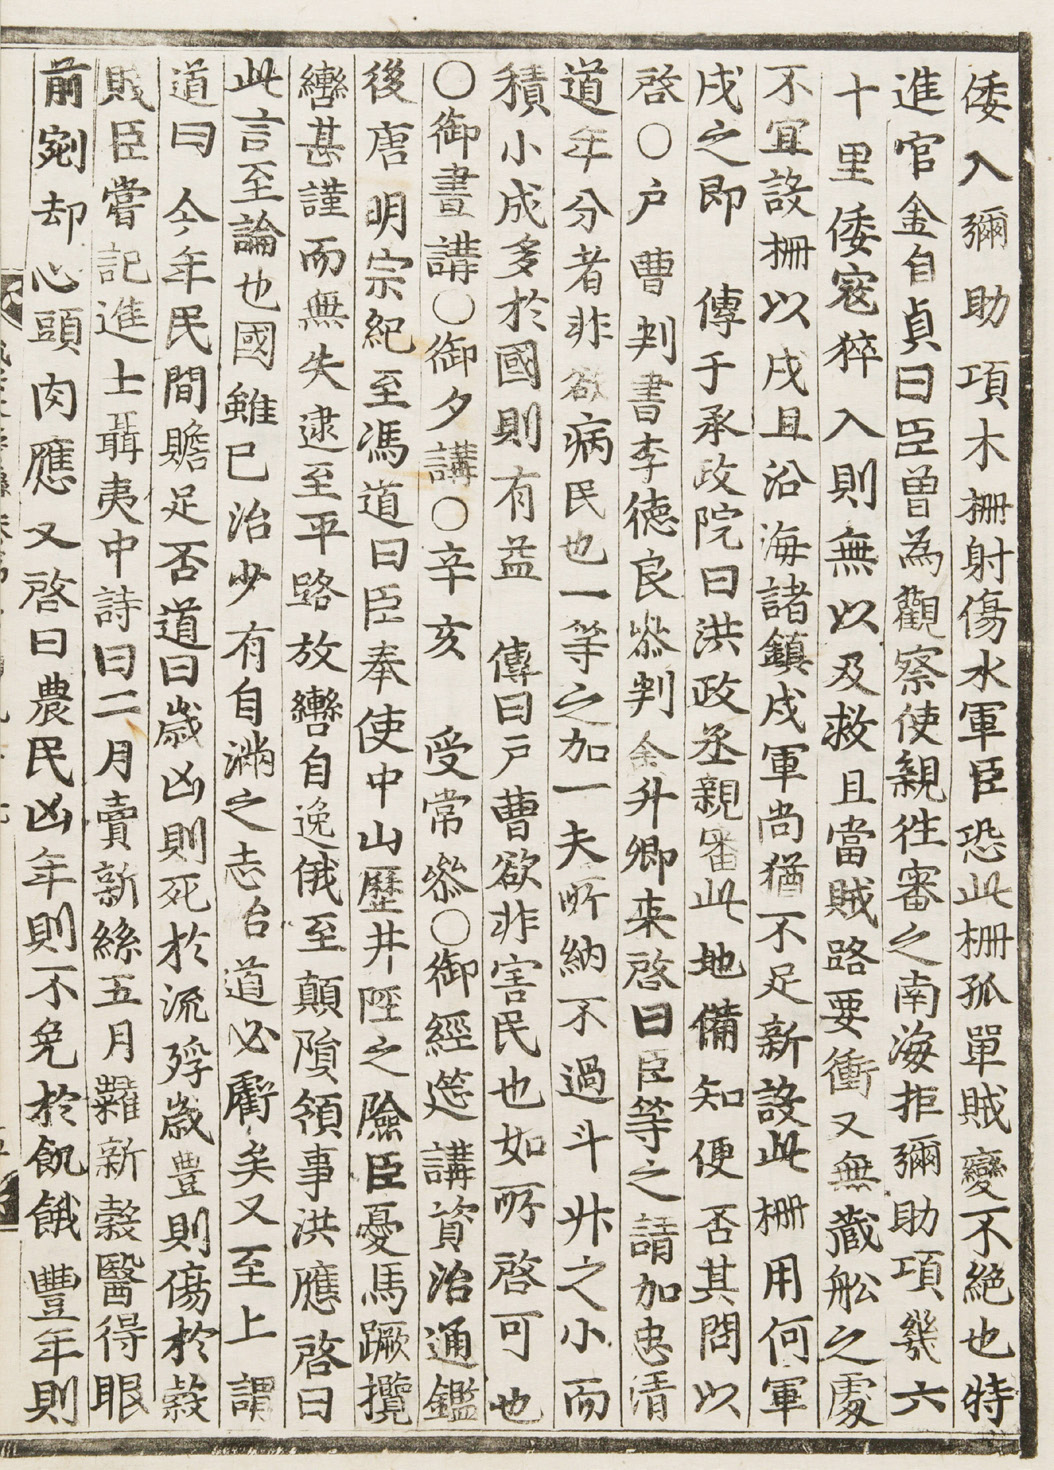 倭入彌助項木柵射傷水軍臣恐此柵孤單賊變不絕也特
進官金自貞曰臣曾為觀察使親往審之南海拒彌助項幾六
十里倭寇猝入則無以及救且當賊路要衝又無藏舩之處
不宜設柵以戍且沿海諸鎭戍軍尚猶不足新設此柵用何軍
戍之即 傳于承政院曰洪政丞親審此地備知便否其問以
啓○戶曹判書李德良叅判金升卿来啓曰臣等之請加忠淸
道年分者非欲病民也一等之加一夫所納不過斗升之小而
積小成多於國則有益 傳曰戶曹欲非害民也如所啓可也
○御晝講○御夕講○辛亥 受常叅○御經筵講資治通鑑
後唐明宗紀至馮道曰臣奉使中山歷井陘之險臣憂馬蹶攬
轡甚謹而無失逮至平路放轡自逸俄至顚隕領事洪應啓曰
此言至論也國雖已治少有自滿之志治道必虧矣又至上謂
道曰今年民間贍足否道曰歲凶則死於流殍歲豊則傷於穀
賤臣嘗記進士聶夷中詩曰二月賣新絲五月糶新穀醫得眼
前剜却心頭肉應又啓曰農民凶年則不免於飢餓豐年則